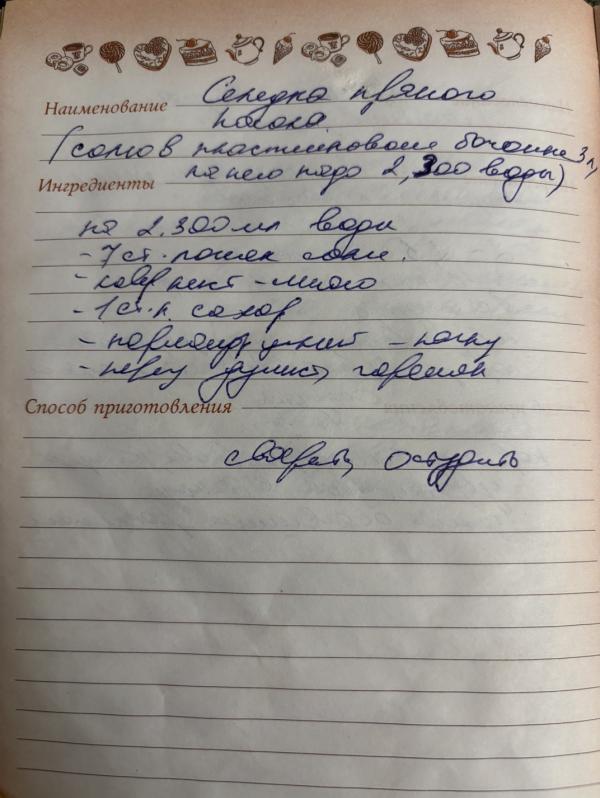 Наименование Селедка пряного
посола
(солю в пластиковом бочонке 3 л,
Ингредиенты на него надо 2,300 воды)
на 2.300 мл воды
- 7 ст. ложек соли.
- лавр лист - много
- 1 ст. л. сахар
- кориандр целый - пачку
- перец душист, горошек
Способ приготовления
сварить, остудить